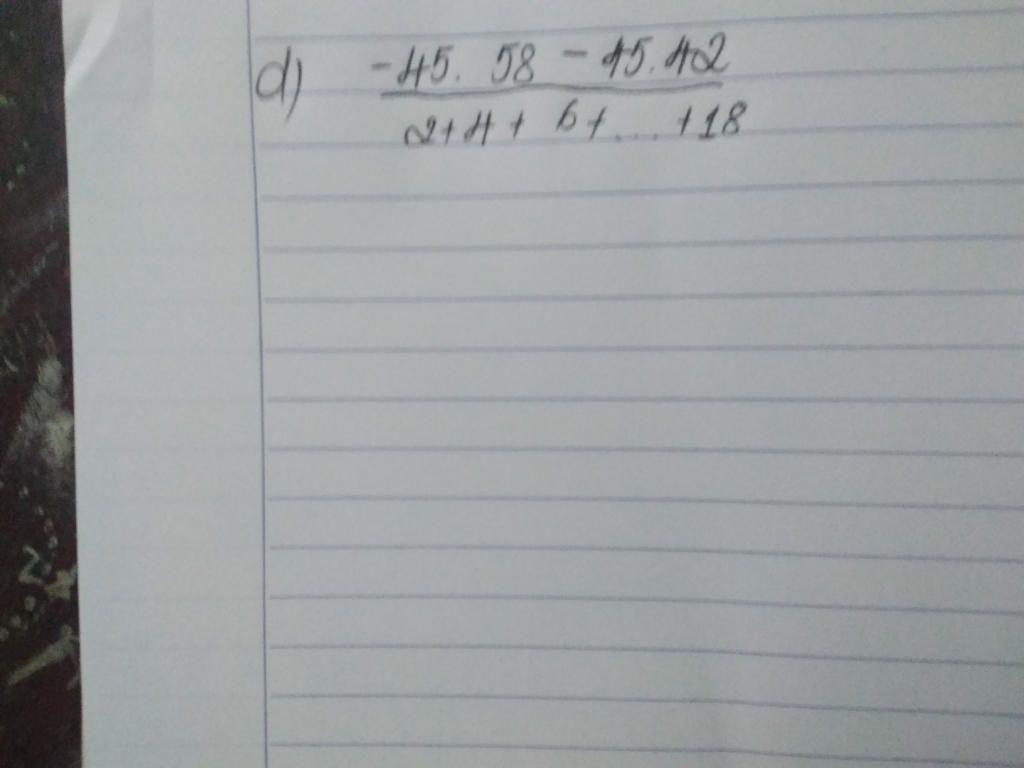 d) -45. 58 - 45.42
2+4+ 6+ ... +18